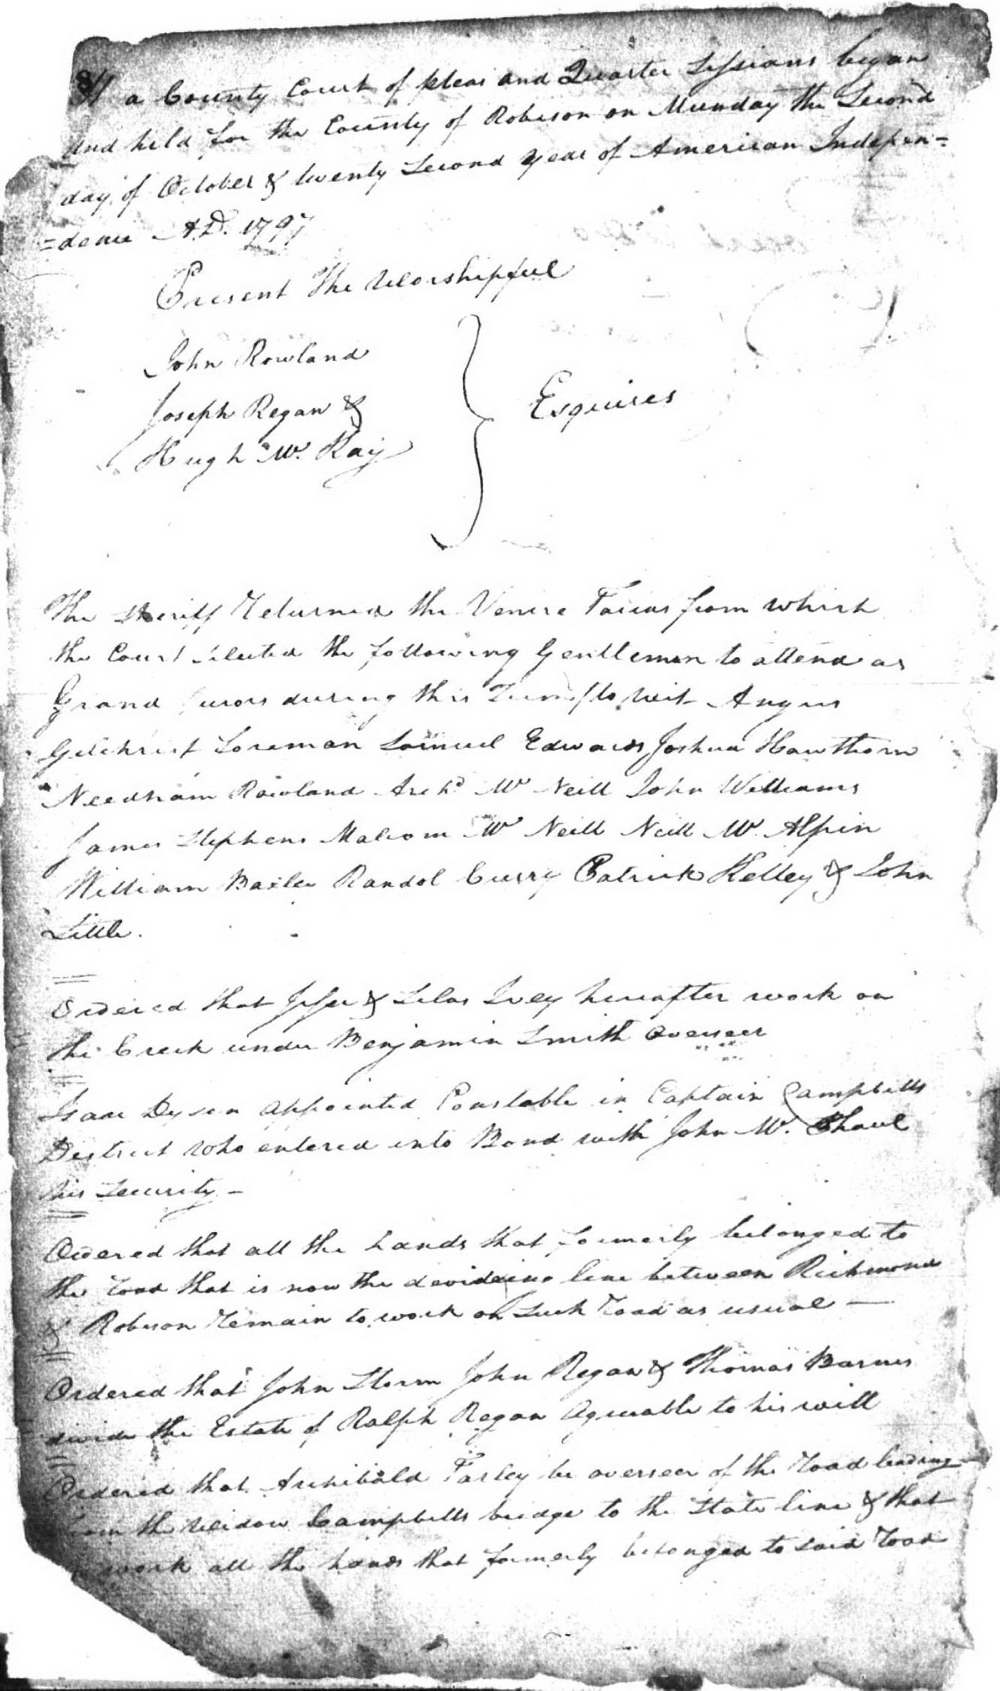 At a County Court of pleas and Quarter Sessions began
and held for the County of Robeson on Munday the Second
day of October & twenty Second year of American Indepen=
=dence A.D. 1797
Present The Worshipful
John Rowland
Joseph Regan &
Hugh McKay
Esquires
The Sheriff Returned the Venire Facias from which
the Court Selected the following Gentlemen to attend as
Grand Jurors during this Term (to wit Angus
Gilchrist Foreman Samuel Edwards Joshua Hawthorn
Needham Rowland Archd McNeill John Williams
James Stephens Malcom McNeill Neill McAlpin
William Baxley Randol Curry Patrick Kelley & John
Little.
Ordered that Jesse & Silas Ivey hereafter work on
the Creek under Benjamin Smith overseer
Isaac Dyson appointed Constable in Captain Campbells
District who entered into Bond with John Mc Phaul
his Security -
Ordered that all the hands that formerly belonged to
the road that is now the devideing line between Richmond
& Robeson Remain to work on Such Road as usual —
Ordered that John Storm John Regan & Thomas Barnes
devide the Estate of Ralph Regan Agreeable to his will
Ordered that Archibald Farley be overseer of the Road leading
from the Widow Campbells bridge to the State line & that
work all the hands that formerly belonged to said Road